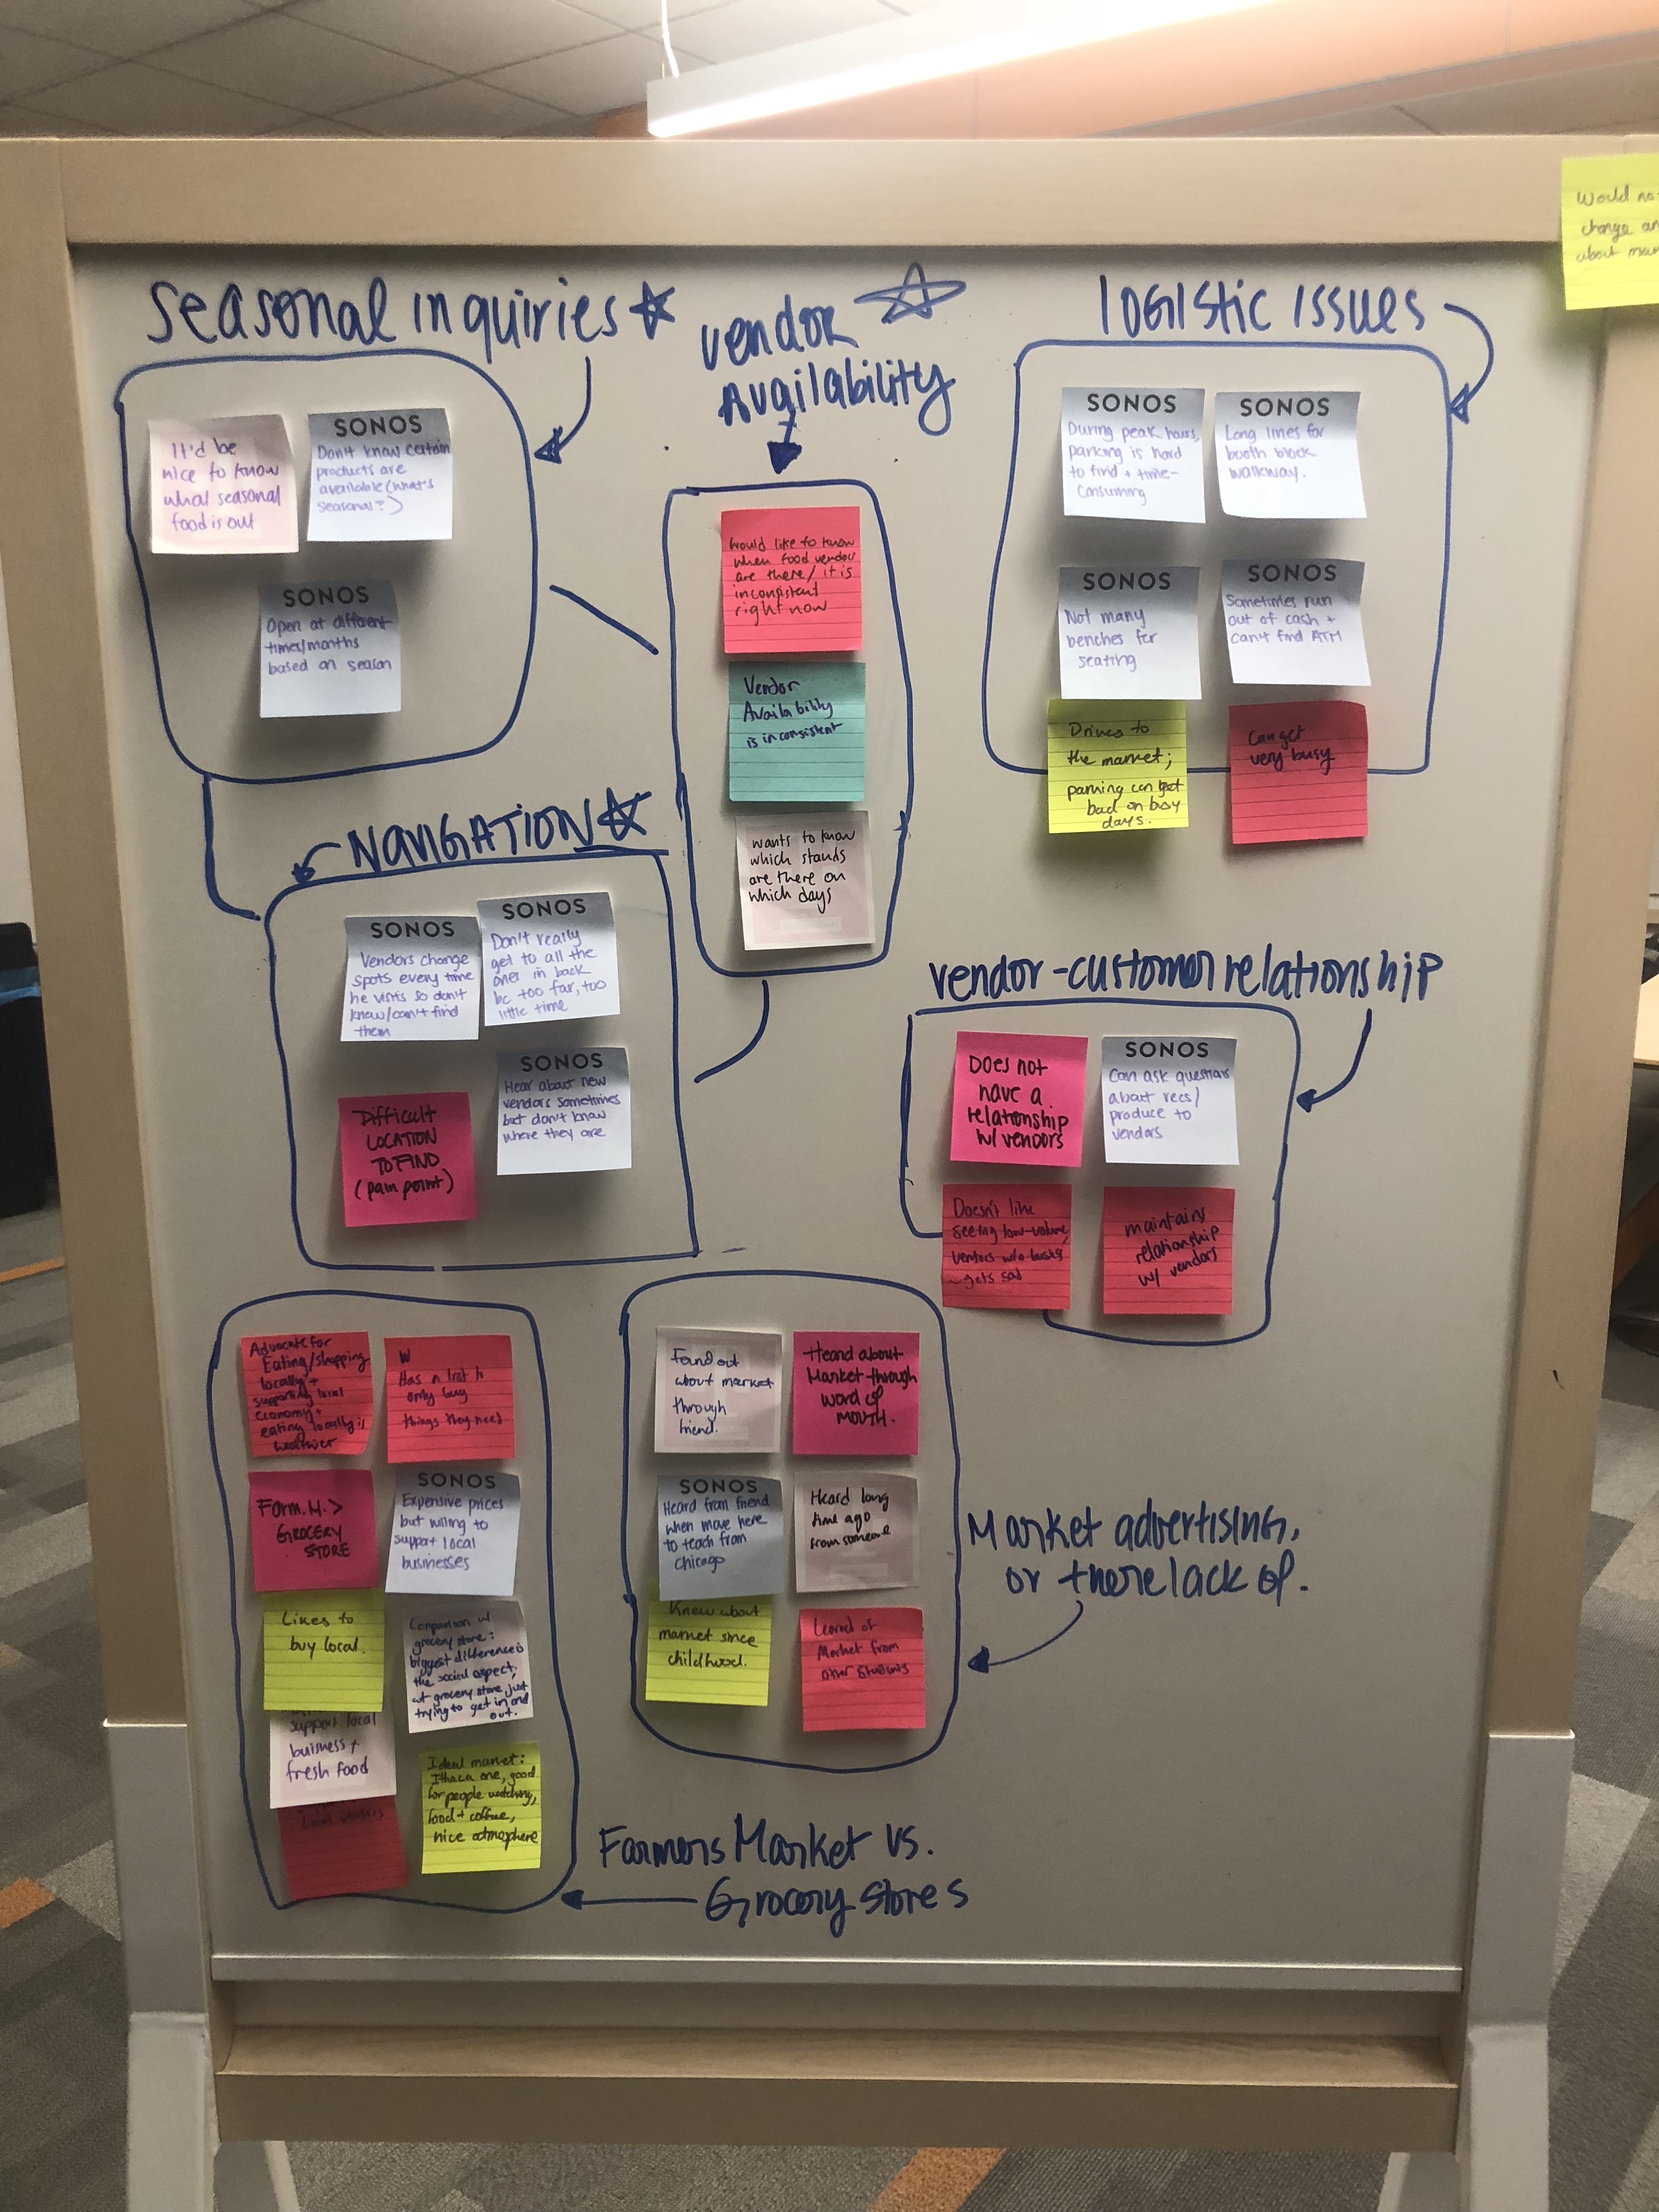 Would no
change an
about mar
Seasonal inquiries
It'd be
nice to know
what seasonal
food is out
SONOS
Don't know certain
products are
available (what's
seasonal?)
SONOS
Open at different
times/months
based on season
vendor
Availability
would like to know
when food vendors
are there/it is
inconsistent
right now
Vendor
Availability
is inconsistent
wants to know
which stands
are there on
which days
logistic issues
SONOS
During peak hours,
parking is hard
to find + time-
consuming
SONOS
Long lines for
booth block
walkway.
SONOS
Not many
benches for
seating
SONOS
Sometimes run
out of cash +
can't find ATM
Drives to
the market;
parking can get
bad on busy
days.
Can get
very busy
NAVIGATION
SONOS
Vendors change
spots every time
he visits so don't
know/can't find
them
SONOS
Don't really
get to all the
ones in back
bc too far, too
little time
Difficult
LOCATION
TO FIND
(pain point)
SONOS
Hear about new
vendors sometimes
but don't know
where they are
vendor-customer relationship
Does not
have a
relationship
w/ vendors
SONOS
Can ask questions
about recs/
produce to
vendors
Doesn't like
seeing low-volume
vendors w/o
gets sad
maintains
relationship
w/ vendors
Advocate for
Eating/shopping
locally +
supporting local
economy +
eating locally is
healthier
Has a list to
only buy
things they need
Farm. M. >
GROCERY
STORE
SONOS
Expensive prices
but willing to
support local
businesses
Likes to
buy local.
Comparison w/
grocery store:
biggest difference is
the social aspect;
at grocery store just
trying to get in and
out.
support local
buisness +
fresh food
local vendors
Ideal market:
Ithaca one, good
for people watching,
food + coffee,
nice atmosphere
Farmers Market vs.
Grocery stores
Found out
about market
through
friend.
Heard about
Market through
word of
MOUTH.
SONOS
Heard from friend
when move here
to teach from
Chicago
Heard long
time ago
from someone
Knew about
market since
childhood.
Learned of
Market from
other students
Market advertising,
or there lack of.